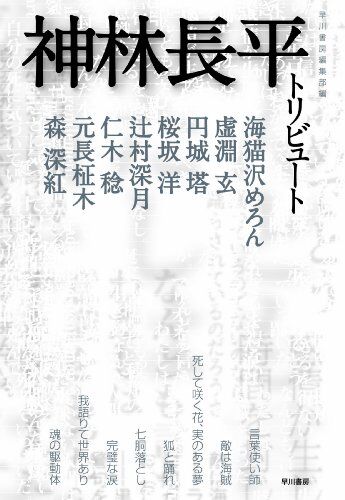 早川書房編集部編
神林長平
トリビュート
海猫沢めろん
虚淵 玄
円城 塔
桜坂 洋
辻村深月
仁木 稔
元長柾木
森 深紅
言葉使い師
敵は海賊
死して咲く花、実のある夢
狐と踊れ
七胴落とし
完璧な涙
我語りて世界あり
魂の駆動体
早川書房